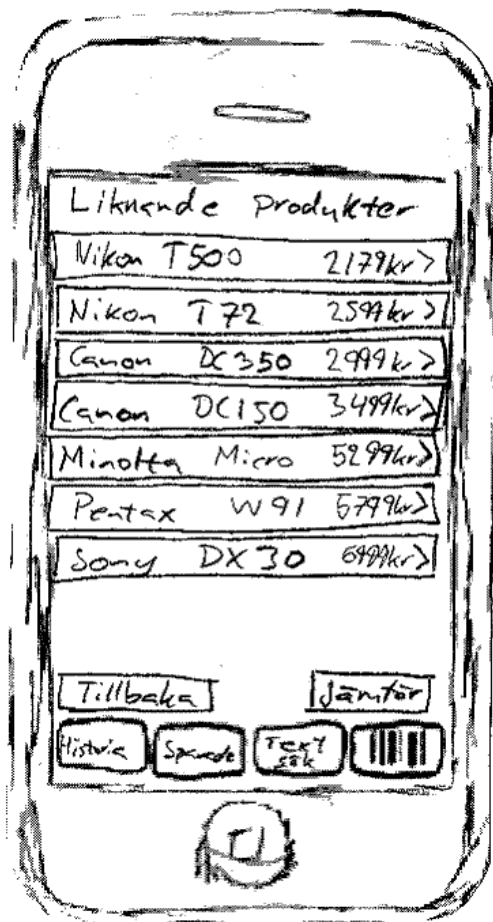 Liknande Produkter
Nikon T500 2179kr >
Nikon T72 2599kr >
Canon DC350 2999kr >
Canon DC150 3499kr >
Minolta Micro 5299kr >
Pentax W91 5799kr >
Sony DX30 6999kr >
Tillbaka Jämför
Historia Sparade Text sök